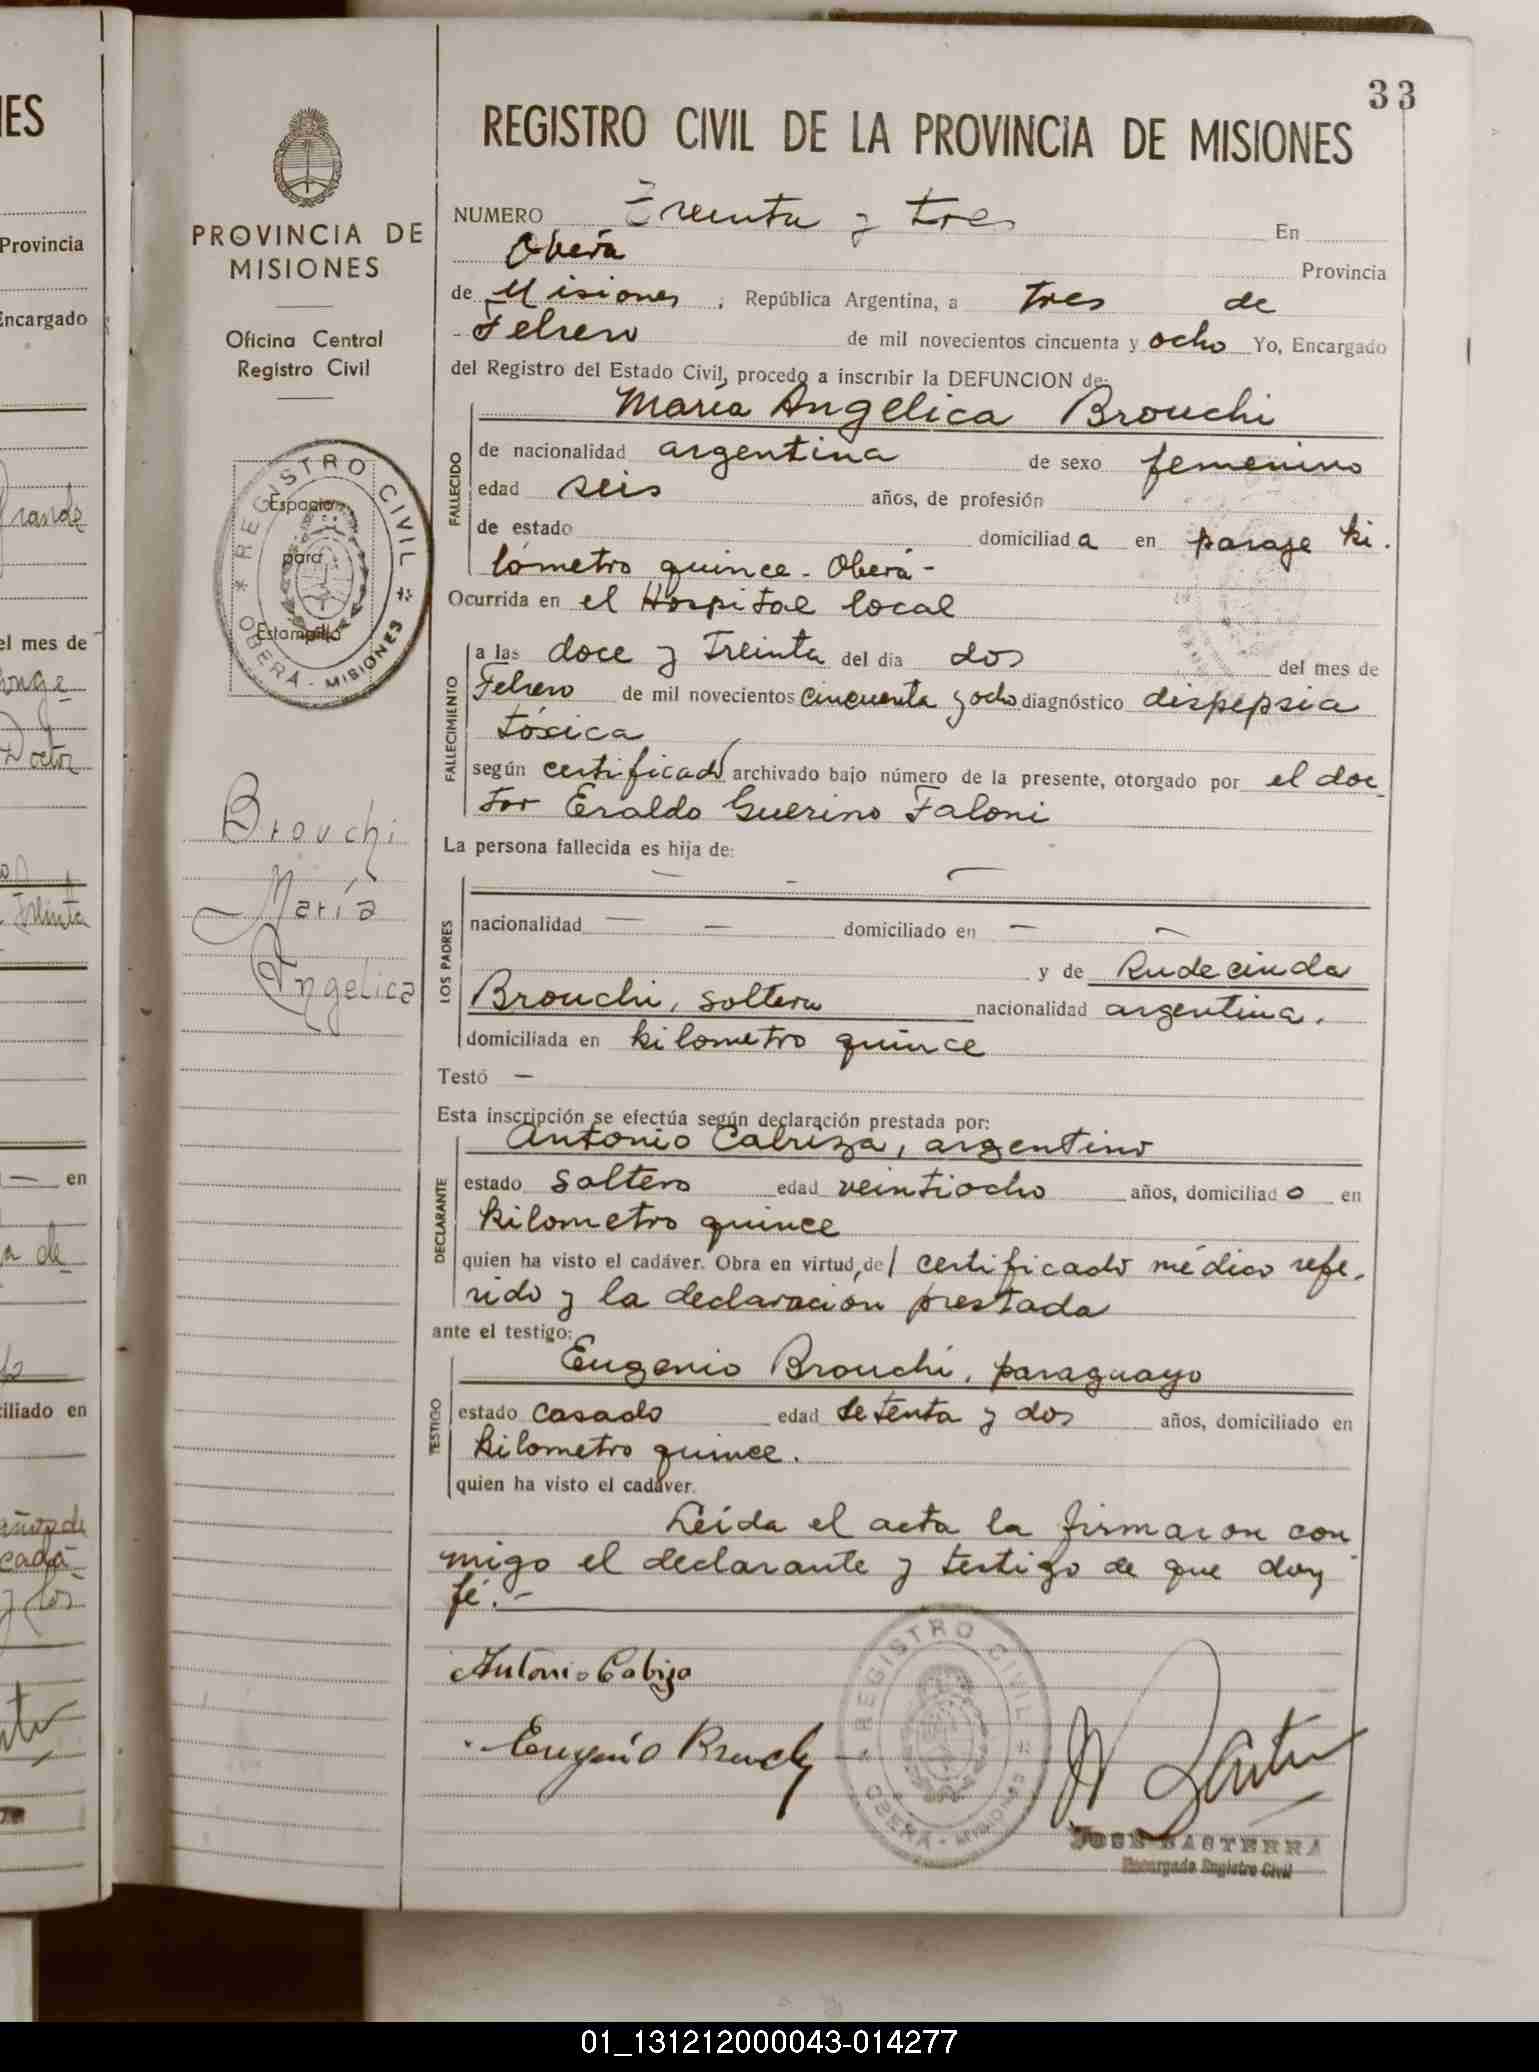 33
REGISTRO CIVIL DE LA PROVINCIA DE MISIONES
PROVINCIA DE
MISIONES
Oficina Central
Registro Civil
REGISTRO CIVIL
OBERÁ - MISIONES
Espacio
para
Estampilla
Brouchi
María
Angelica
NUMERO Treinta y tres En
Oberá Provincia
de Misiones, República Argentina, a tres de
Febrero de mil novecientos cincuenta y ocho Yo, Encargado
del Registro del Estado Civil, procedo a inscribir la DEFUNCION de:
María Angelica Brouchi
FALLECIDO
de nacionalidad argentina de sexo femenino
edad seis años, de profesión
de estado domiciliada en paraje ki.
lómetro quince - Oberá -
Ocurrida en el Hospital local
FALLECIMIENTO
a las doce y Treinta del dia dos del mes de
Febrero de mil novecientos cincuenta y ocho diagnóstico dispepsia
tóxica
según certificado archivado bajo número de la presente, otorgado por el doc
tor Eraldo Guerino Faloni
La persona fallecida es hija de:
LOS PADRES
nacionalidad — — domiciliado en — —
y de Rudecinda
Brouchi, soltera nacionalidad argentina.
domiciliada en kilometro quince
Testó —
Esta inscripción se efectúa según declaración prestada por:
Antonio Cabriza, argentino
DECLARANTE
estado soltero edad veintiocho años, domiciliado en
kilometro quince
quien ha visto el cadáver. Obra en virtud, del certificado médico refe.
rido y la declaración prestada
ante el testigo:
Eugenio Brouchi, paraguayo
TESTIGO
estado casado edad setenta y dos años, domiciliado en
kilometro quince.
quien ha visto el cadáver.
Leída el acta la firmaron con
migo el declarante y testigo de que doy
fé.-
Antonio Cabiza
Eugenio Brouchi
REGISTRO CIVIL
OBERÁ - MISIONES
JOSE BASTERRA
Encargado Registro Civil
01_131212000043-014277